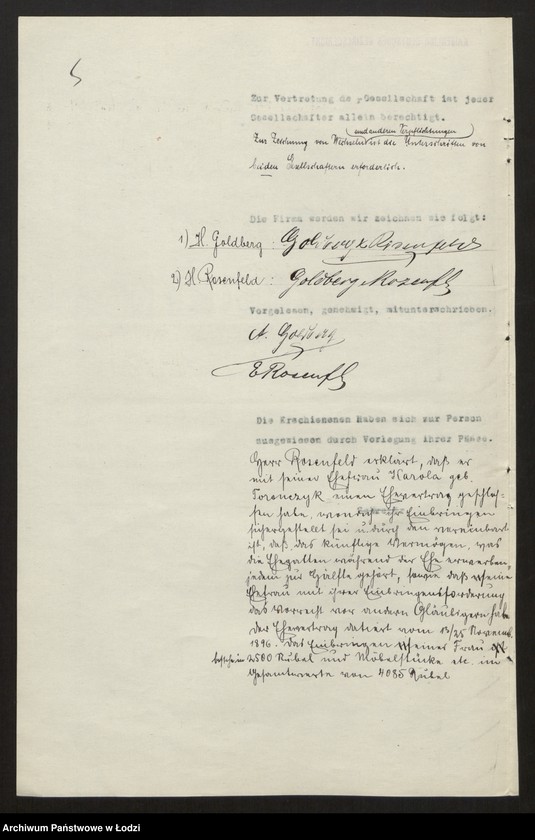 5
Zur Vertretung der Gesellschaft ist jeder
Gesellschafter allein berechtigt.
und anderen Verpflichtungen
Zur Zeichnung von Wechseln ist die Unterschriften von
beiden Gesellschaftern erforderlich.
Die Firma werden wir zeichnen wie folgt:
1) H. Goldberg : Goldberg & Rosenfeld
2) H Rosenfeld : Goldberg & Rosenfeld
Vorgelesen, genehmigt, mitunterschrieben.
Goldberg
Rosenfeld
Die Erschienenen haben sich zur Person
ausgewiesen durch Vorlegung ihrer Pässe.
Herr Rosenfeld erklärt, daß er
mit seiner Ehefrau Karola geb.
Toronczyk einen Ehevertrag geschlos-
sen habe, wonach ihr Einbringen
sichergestellt sei u. durch den vereinbart
ist, daß das künftige Vermögen, was
die Ehegatten während der Ehe erwerben,
jedem zur Hälfte gehört, sowie daß seine
Ehefrau mit ihrer Einbringensforderung
das Vorrecht vor andern Gläubigern habe
Der Ehevertrag datiert vom 13/25 Novemb.
1896. Das Einbringen seiner Frau
besteht in 2500 Rubel und Möbelstücke etc. im
Gesamtwerte von 4085 Rubel
Archiwum Państwowe w Łodzi